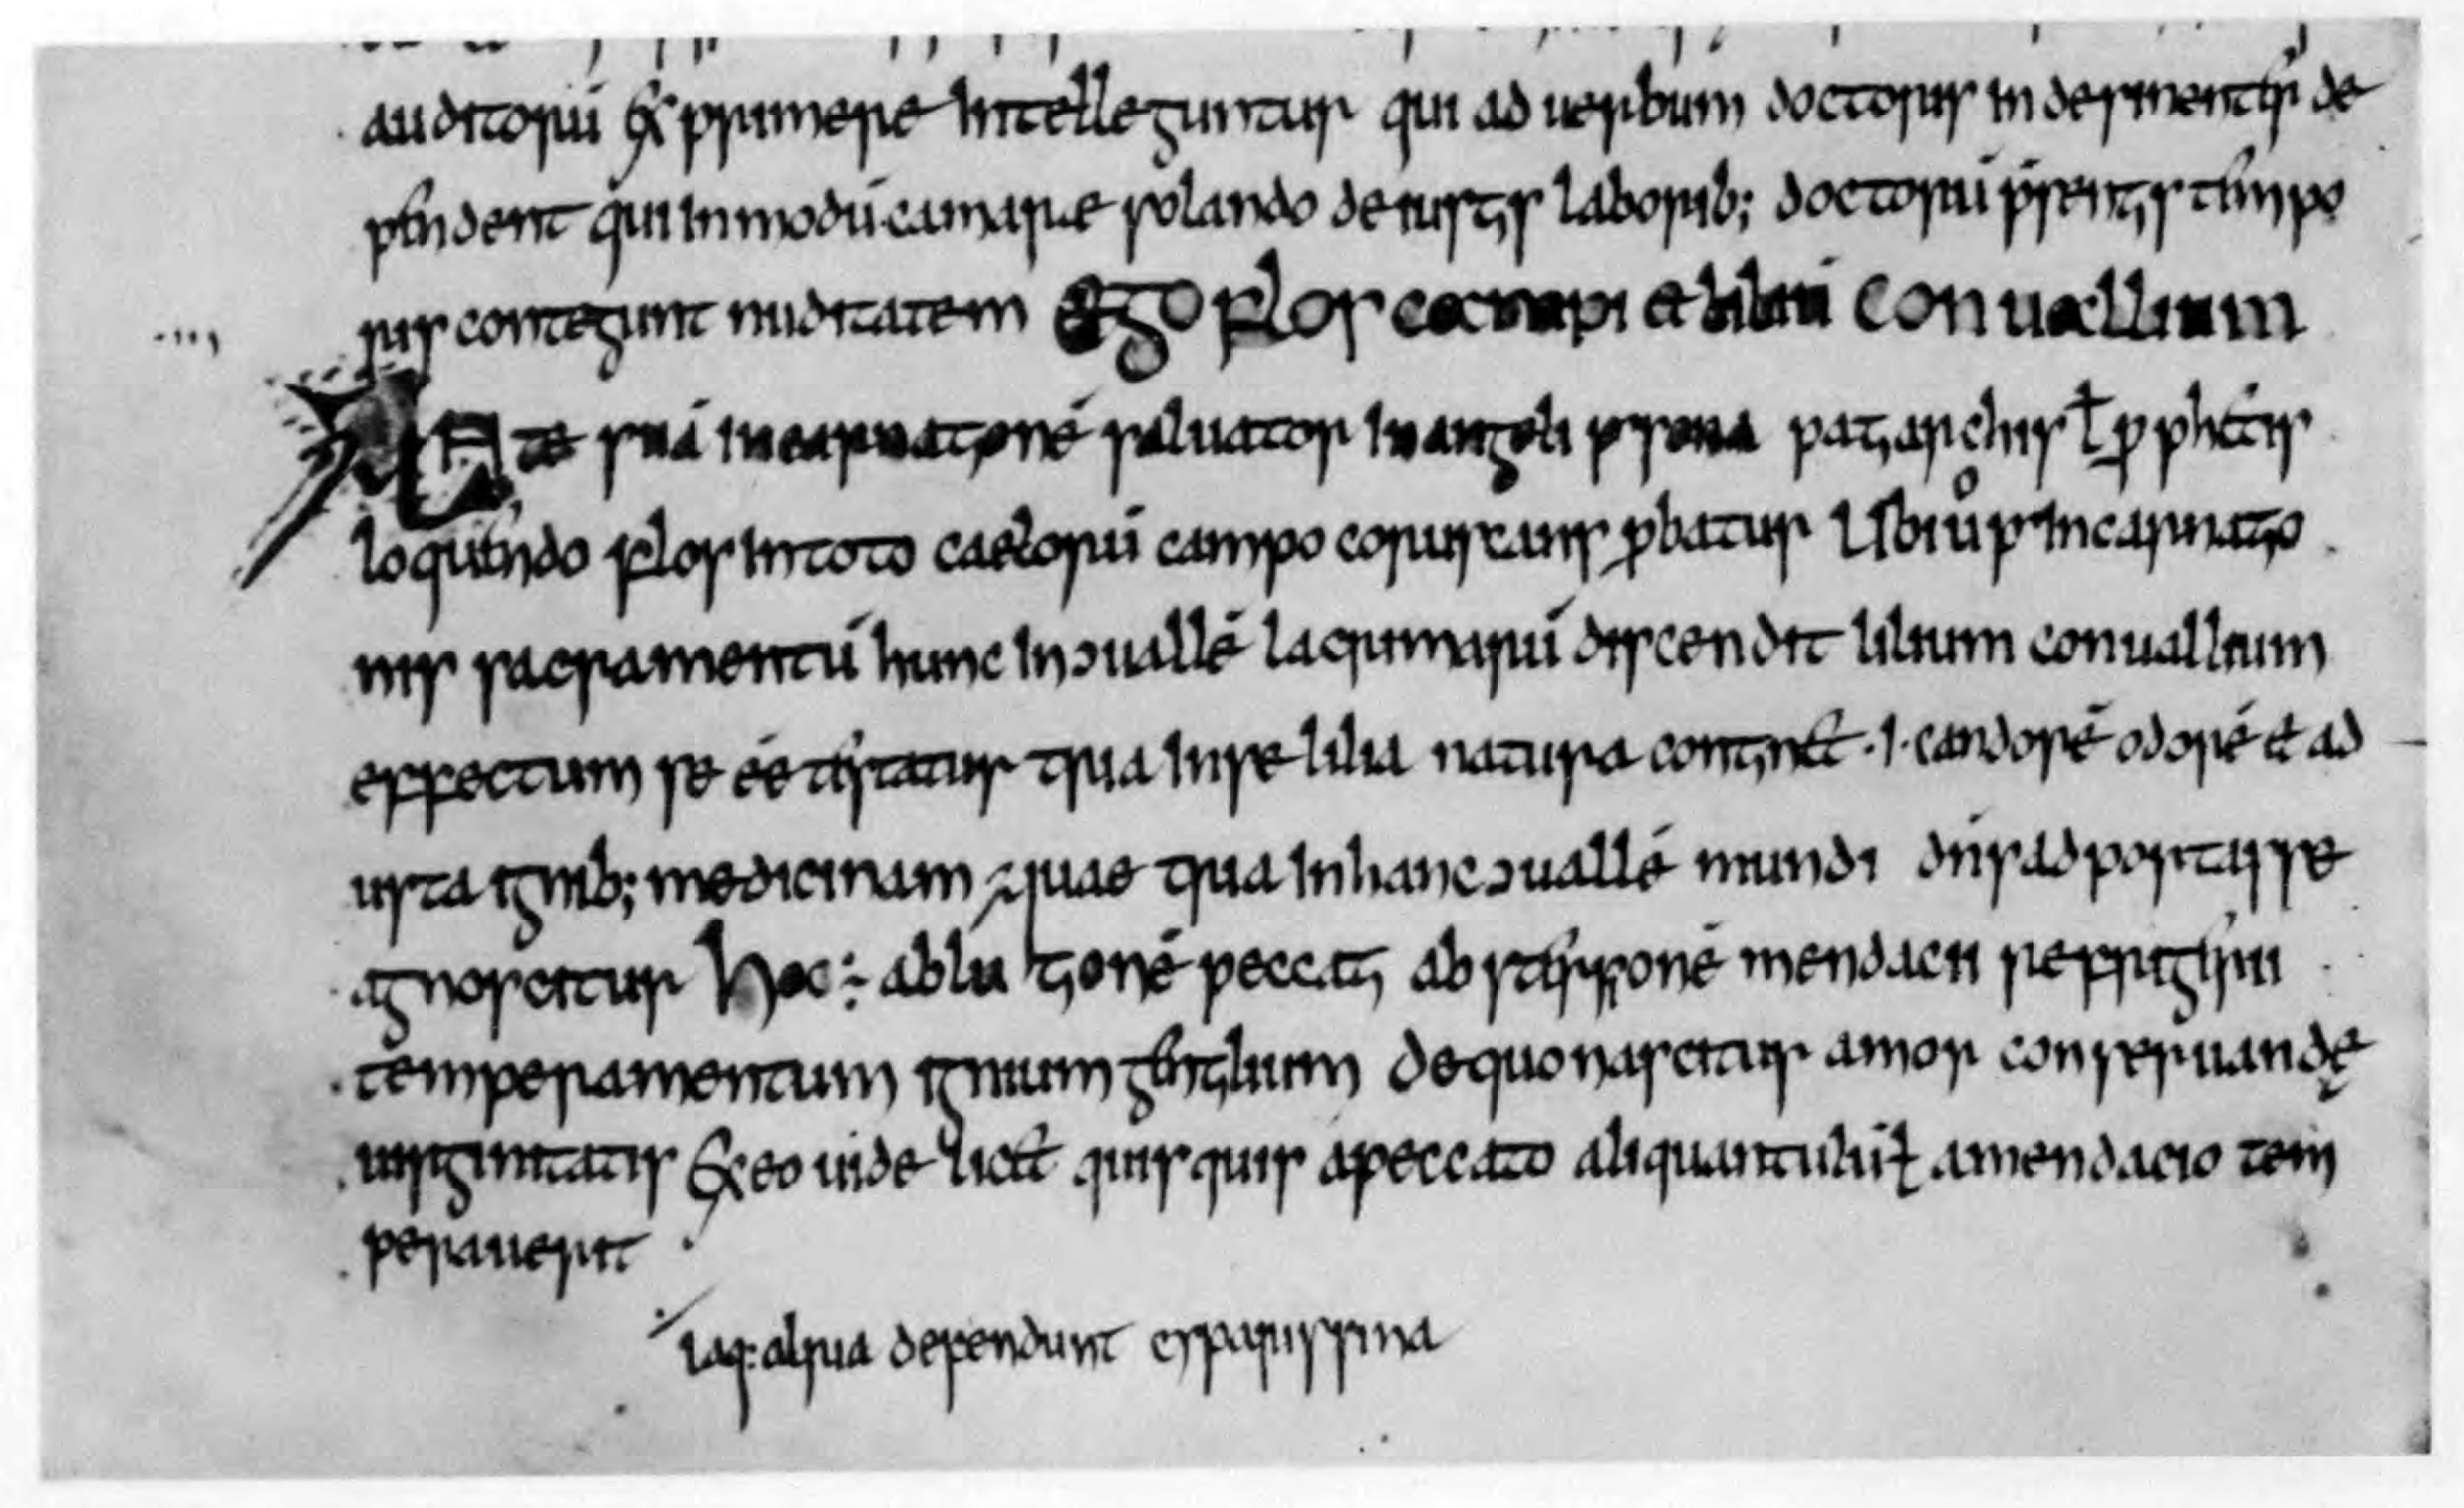 auditorū exprimere intelleguntur qui ad uerbum doctoris indesinenter de
pendent qui in modū camarae solando deiustis laborib; doctorū p̄sentis tempo
ris contegunt nuditatem Ego flos campi et lilium conuallium
Ante suā incarnationē saluator in angeli persona patriarchis ł prophetis
loquendo flos in toto caelorū campo coruscans probatur Ubi ů per incarnatio
nis sacramentū hunc in conuallē lacrimarū discendit lilium conuallium
effectum se ēē testatur quia in se lilia natura continet .i. candorē odorē et ad
usta ignib; medicinam quae quia in hanc conuallē mundi dn̄s adportasse
agnoscitur Hoc ÷ ablutionē peccati abstersionē mendacii refrigerii
temperamentum ignium gentilium de quo nascitur amor conseruandę
uirginitatis Ex eo uidelicet quisquis a peccato aliquantulū ł a mendacio tem
perauerit
dependunt